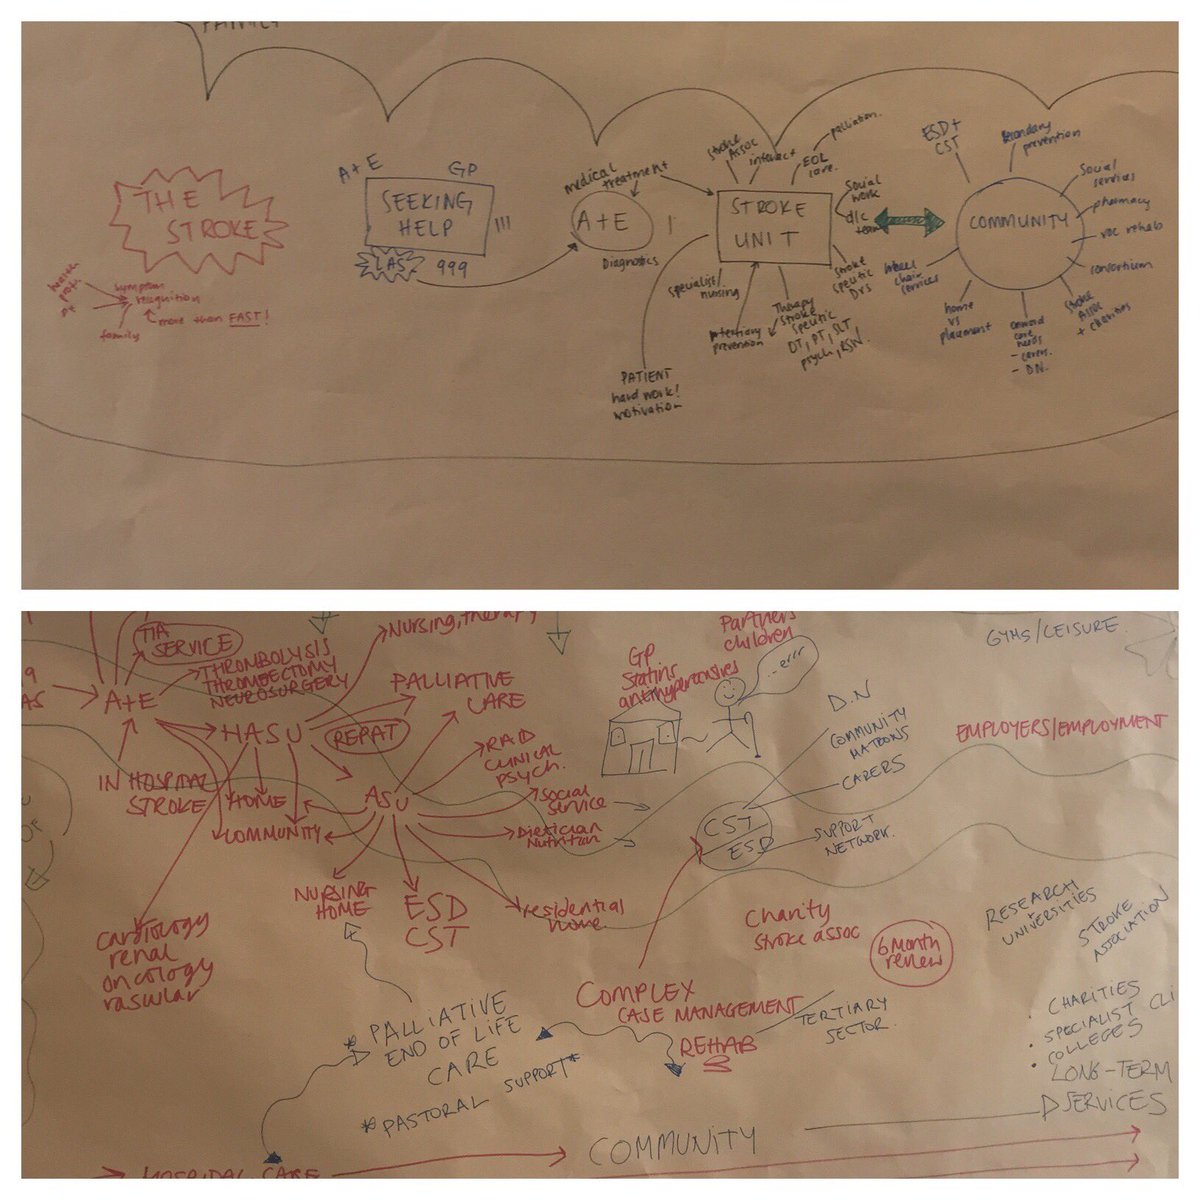 FAMILY
THE
STROKE
symptom
recognition
more than FAST!
family
A+E
GP
SEEKING
HELP
!!!
LAS
999
medical
treatment
A+E
Diagnostics
Stroke
Assoc
interact
palliation.
EOL
care.
STROKE
UNIT
Social
work
d/c
team
Stroke
specific
Drs
specialist
nursing
prevention
Therapy
Stroke
specific
OT, PT, SLT,
psych, RSW.
PATIENT
hard work!
motivation
ESD+
CST
Secondary
prevention
Social
services
pharmacy
voc rehab
consortium
COMMUNITY
wheel
chair
services
home
vs
placement
care
needs
- carers.
- DN.
Stroke
Assoc
+ charities
TIA
SERVICE
A+E
THROMBOLYSIS
THROMBECTOMY
NEUROSURGERY
Nursing, therapy
HASU
REPAT
PALLIATIVE
CARE
IN HOSPITAL
STROKE
HOME
COMMUNITY
ASU
CLINICAL
PSYCH.
Social
service
Dietician
Nutrition
NURSING
HOME
ESD
CST
residential
home
cardiology
renal
oncology
vascular
GP
Statins
antihypertensives
Partners
children
...errr
D.N
COMMUNITY
MATRONS
CARERS
CST
ESD
SUPPORT
NETWORK.
GYMS/LEISURE
EMPLOYERS/EMPLOYMENT
Charity
Stroke assoc
6 Month
review
RESEARCH
+
UNIVERSITIES
STROKE
ASSOCIATION
COMPLEX
CASE MANAGEMENT
REHAB
TERTIARY
SECTOR.
* PALLIATIVE
END OF LIFE
CARE
* PASTORAL SUPPORT *
• CHARITIES
SPECIALIST CLI
• COLLEGES
• LONG-TERM
SERVICES
HOSPITAL CARE
COMMUNITY